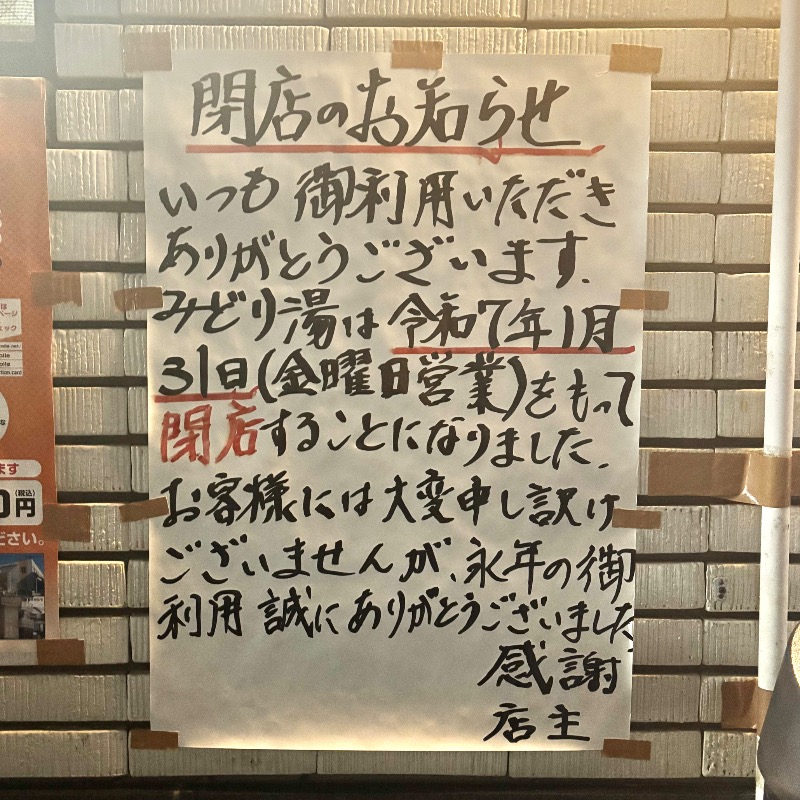 閉店のお知らせ
いつも御利用いただき
ありがとうございます.
みどり湯は令和7年1月
31日(金曜日営業)をもって
閉店することになりました.
お客様には大変申し訳け
ございませんが、永年の御
利用 誠にありがとうございました.
感謝
店主
は
ページ
ェック
ます
0円
(税込)
ださい。